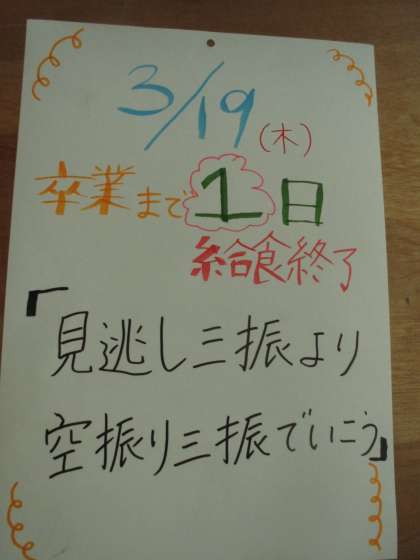 3/19(木)
卒業まで1日
給食終了
「見逃し三振より
空振り三振でいこう」